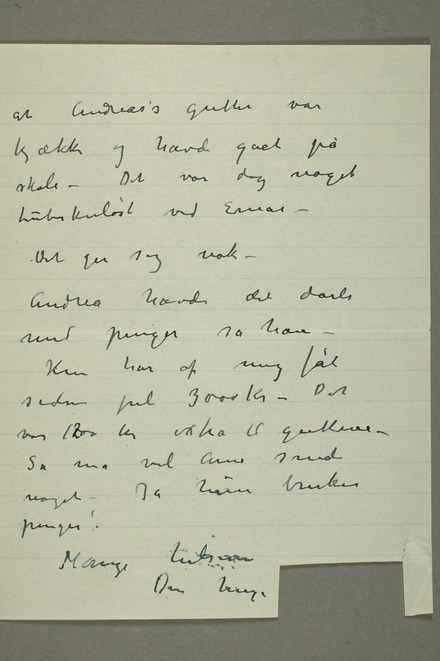 at Andreas's gutter var
kjække og havde gaat på
skole – Det var dog noget
tuberkuløst ved Ernas –
Det ger seg nok –
Andrea havde det daarli
med penger sa han –
Hun har af mig fåt
siden jul 3000 kr – Det
var 1200 kr extra til guttene –
Sa ma vel Arne smed
noget – Ja hun bruker
penger!
Mange hilsener
Din